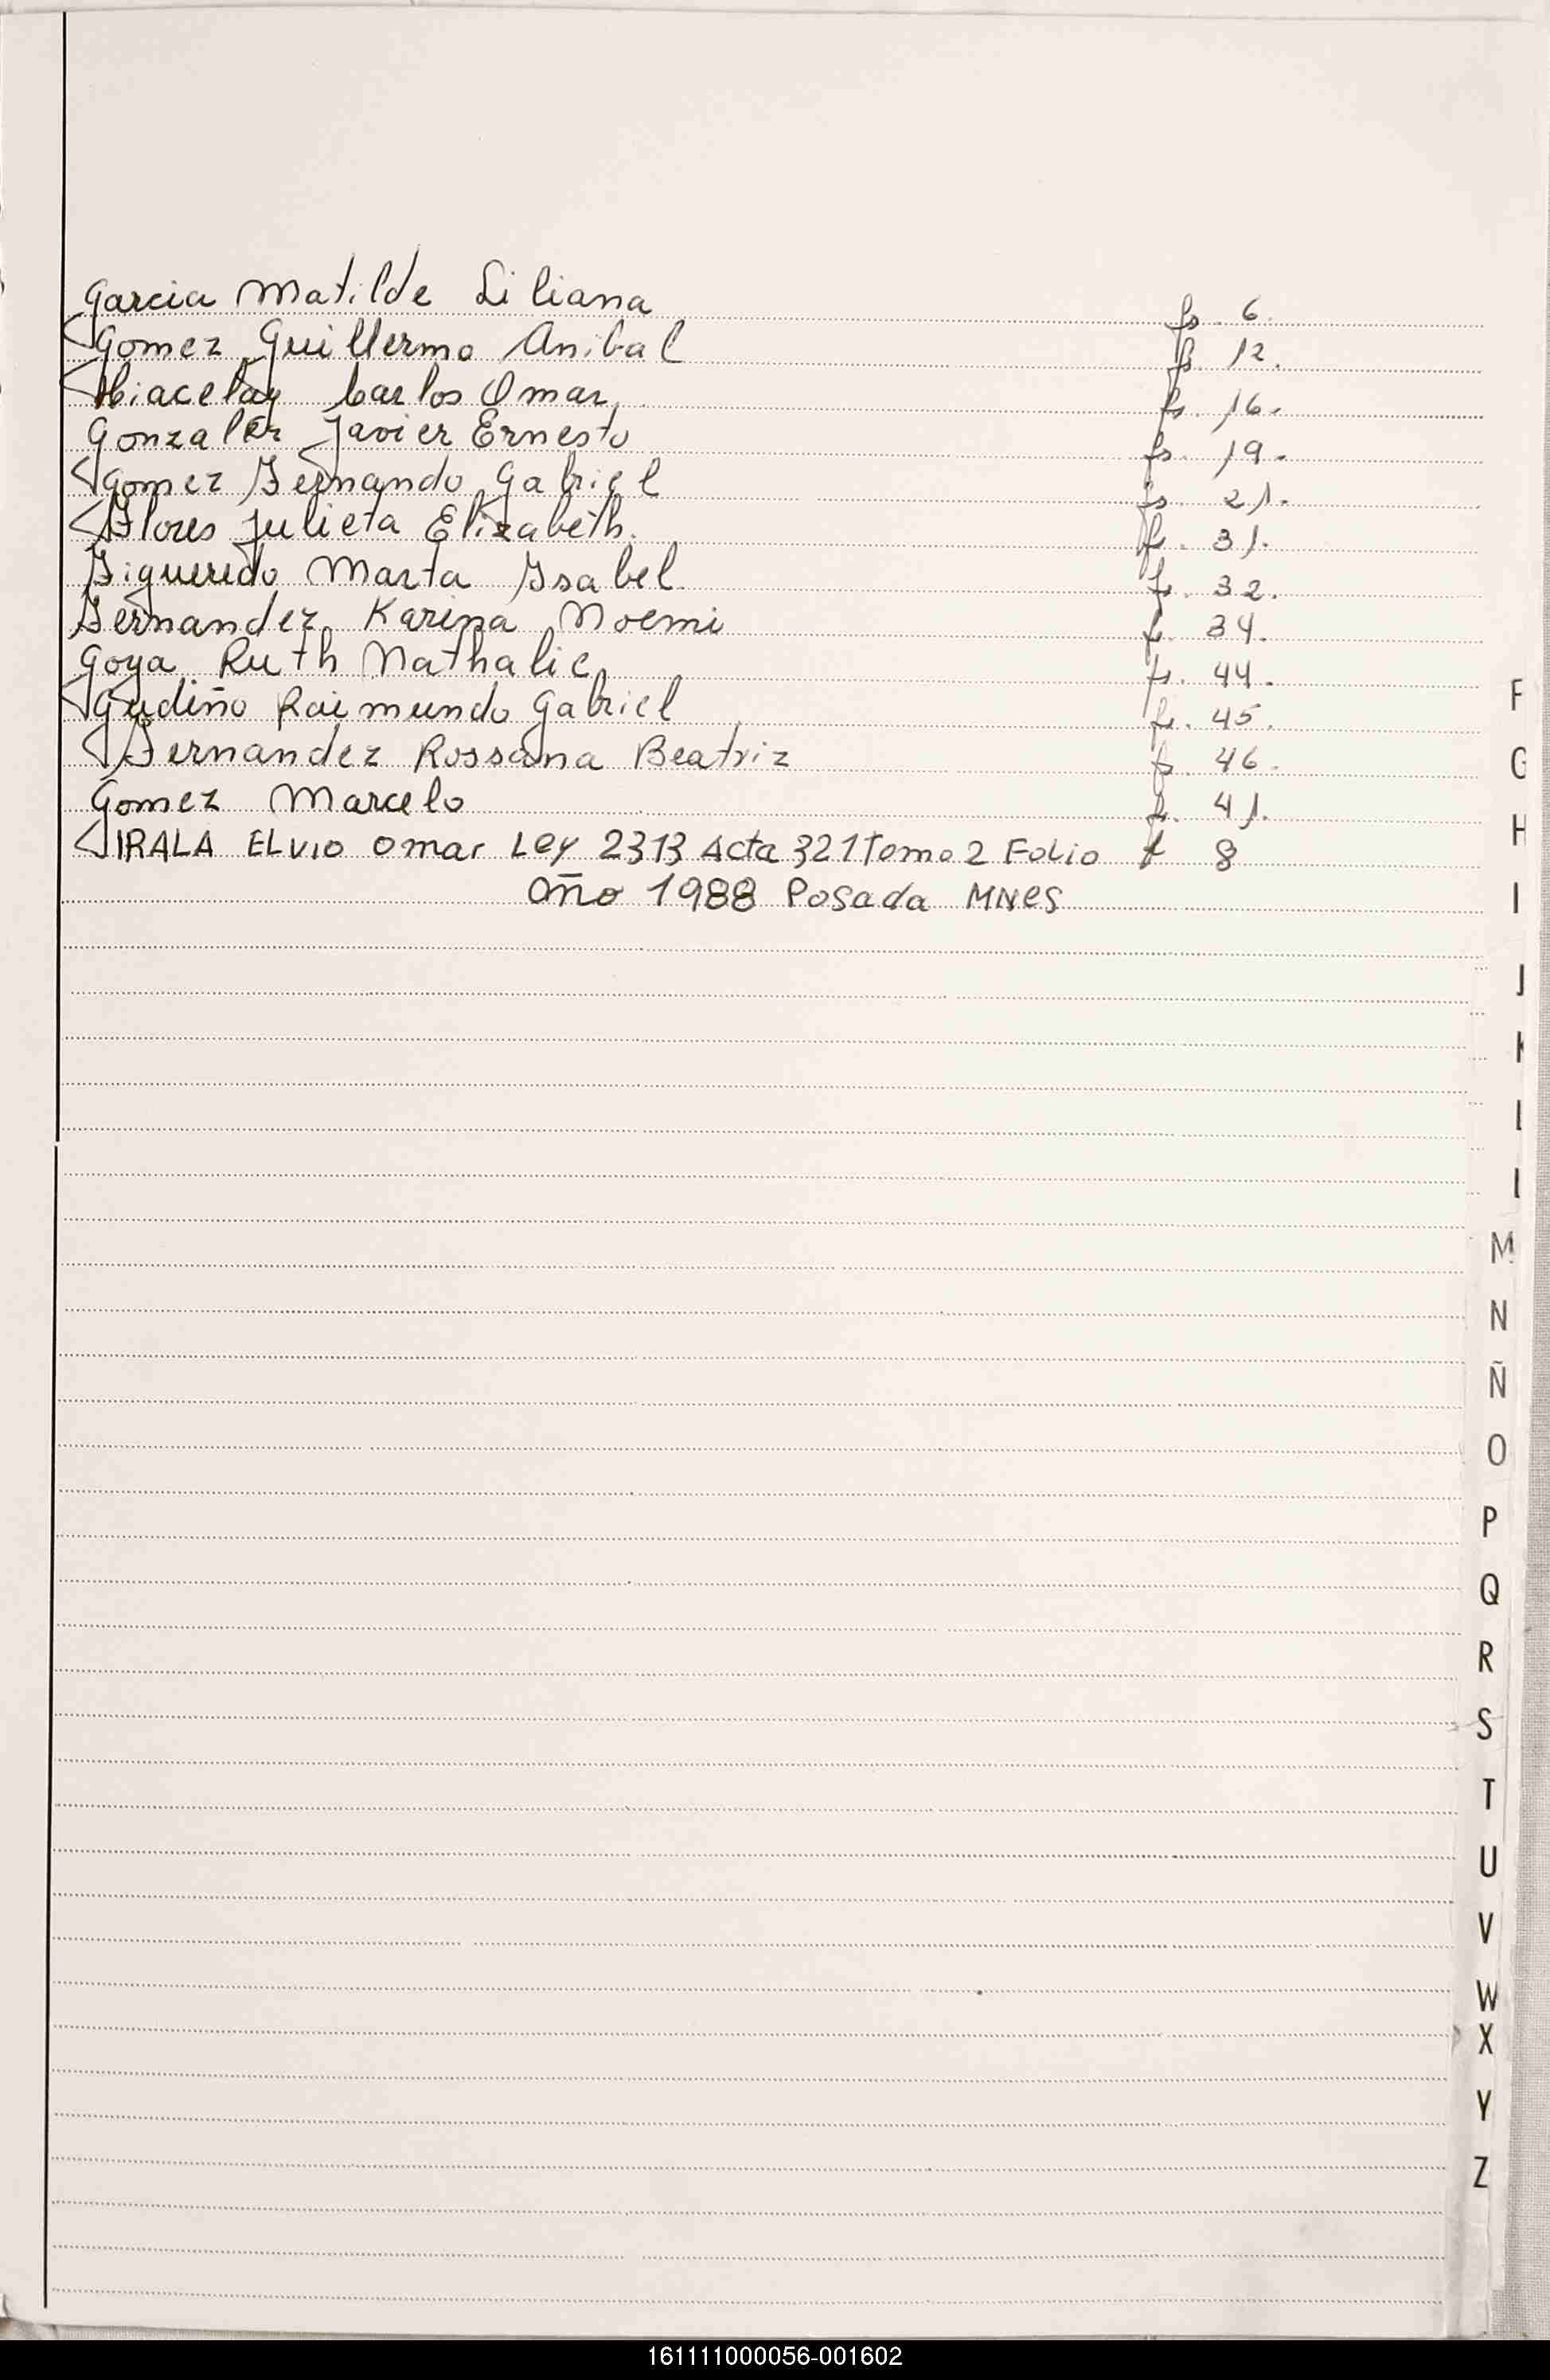 Garcia Matilde Liliana fs. 6.
Gomez Guillermo Anibal fs. 12.
Hiacelay Carlos Omar fs. 16.
Gonzalez Javier Ernesto fs. 19.
Gomez Fernando Gabriel fs. 21.
Flores Julieta Elizabeth. fs. 31.
Figueredo Marta Ysabel fs. 32.
Fernandez Karina Noemi fs. 34.
Goya Ruth Nathalie fs. 44.
Gudiño Raimundo Gabriel fs. 45.
Fernandez Rossana Beatriz fs. 46.
Gomez Marcelo fs. 41.
IRALA ELVIO Omar Ley 2313 Acta 321 Tomo 2 Folio f 8
Año 1988 Posada MNES
F
G
H
I
J
K
L
L
M
N
Ñ
O
P
Q
R
S
T
U
V
W
X
Y
Z
161111000056-001602